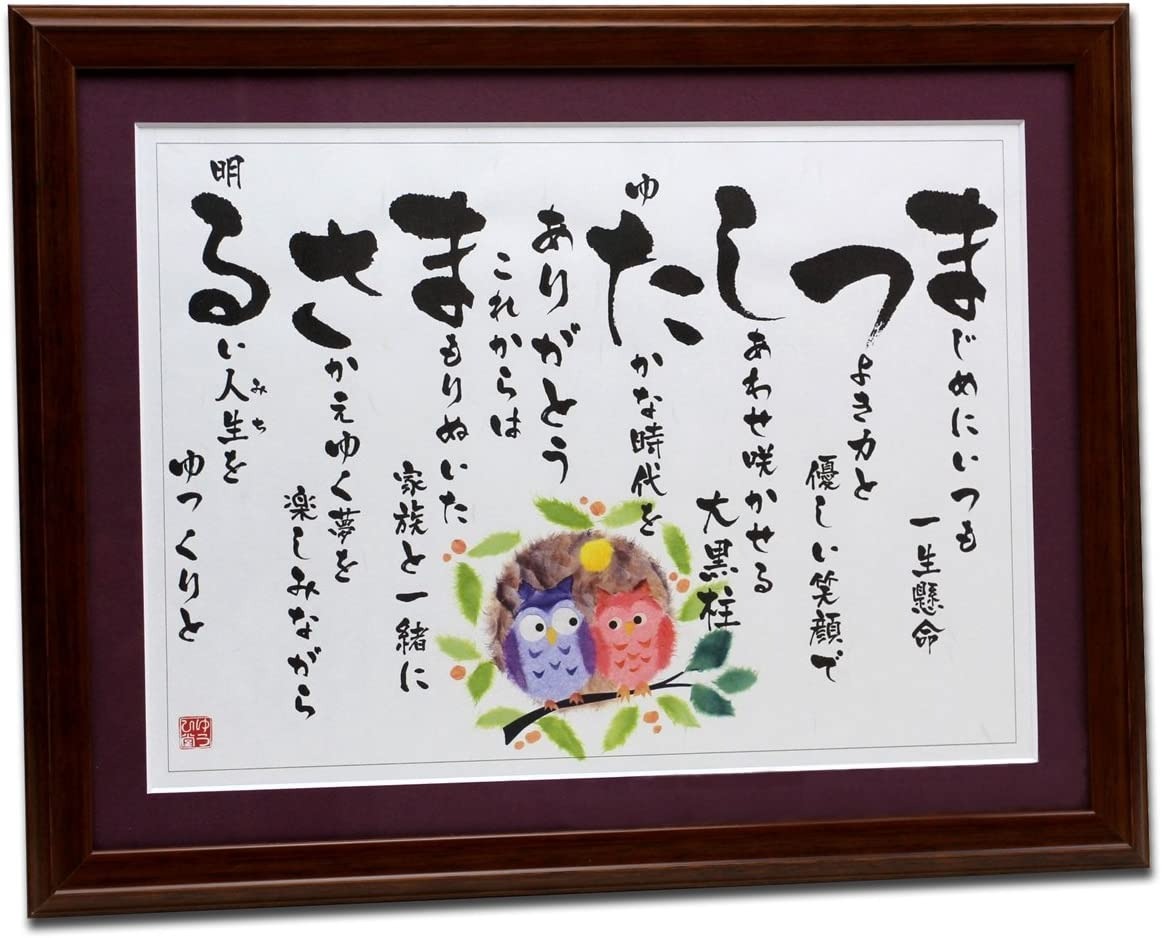 まじめにいつも
一生懸命
つよき力と
優しい笑顔で
しあわせ咲かせる
大黒柱
ゆたかな時代を
ありがとう
これからは
まもりぬいた
家族と一緒に
さかえゆく夢を
楽しみながら
明るい人生を
みち
ゆっくりと
ゆうひ堂